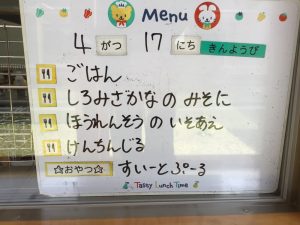 Menu
4 がつ 17 にち きんようび
ごはん
しろみざかなの みそに
ほうれんそうの いそあえ
けんちんじる
☆おやつ☆ すいーとぷーる
Tasty Lunch Time